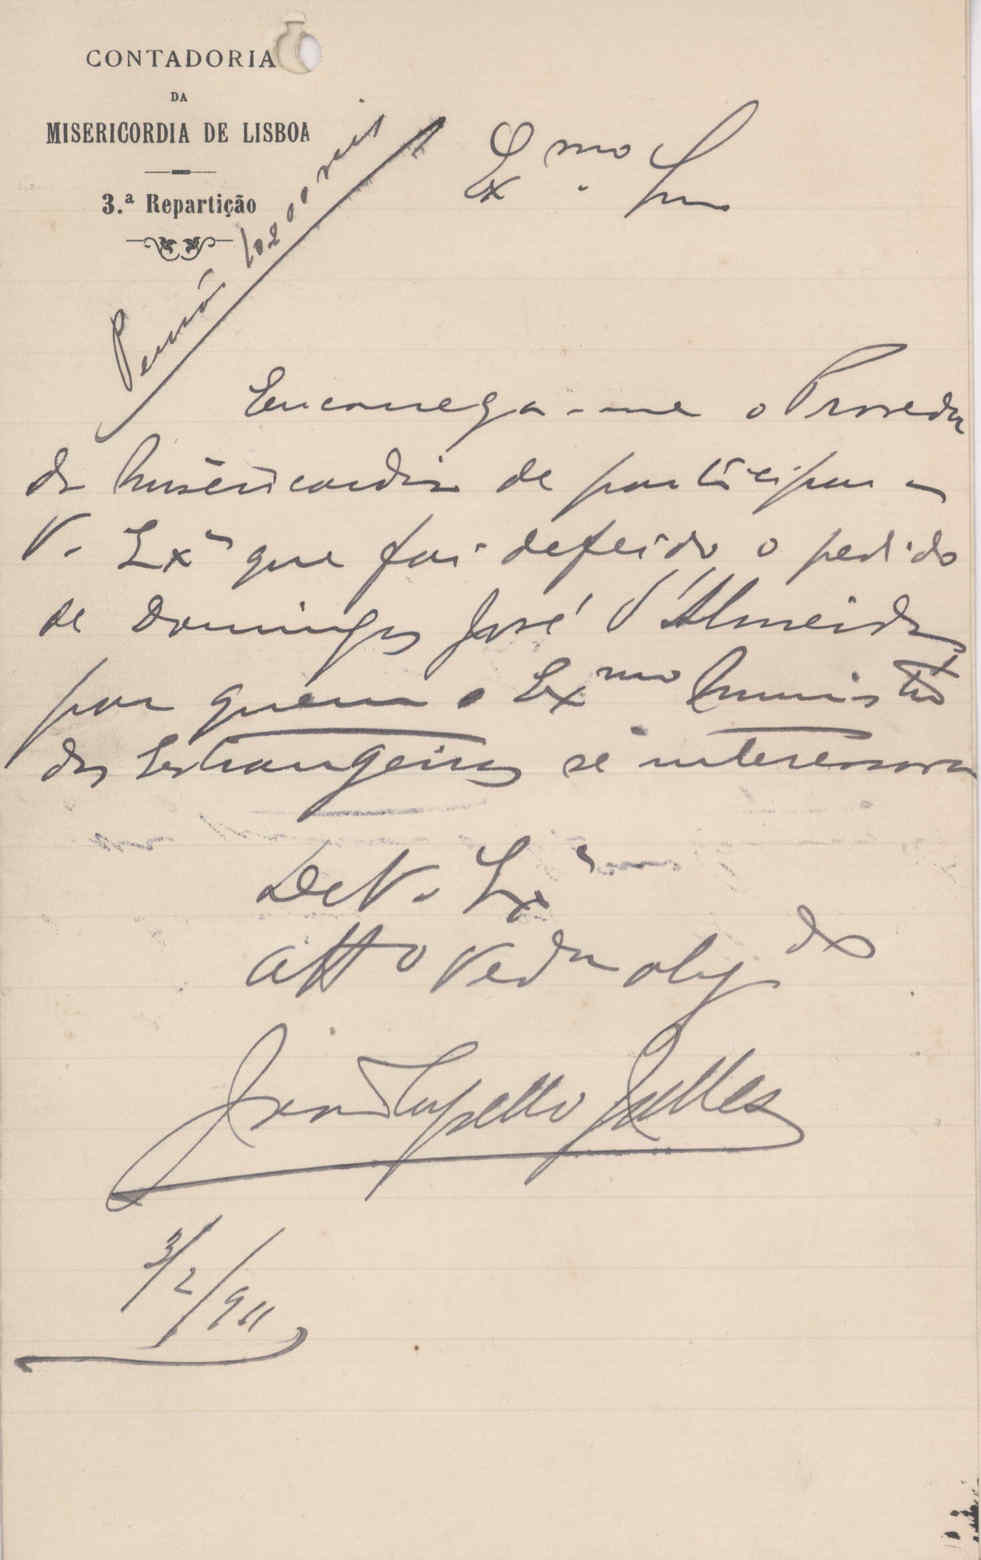 CONTADORIA
DA
MISERICORDIA DE LISBOA
3.ª Repartição
reis
Exmo Snr
Encarrega-me o Provedor
da Misericordia de participar a
V. Exª que foi deferido o pedido
de Domingos José d'Almeida
por quem o Exmo Ministro
dos Estrangeiros se interessara
De V. Exª
Atto Vedor obgdo
3/2/911